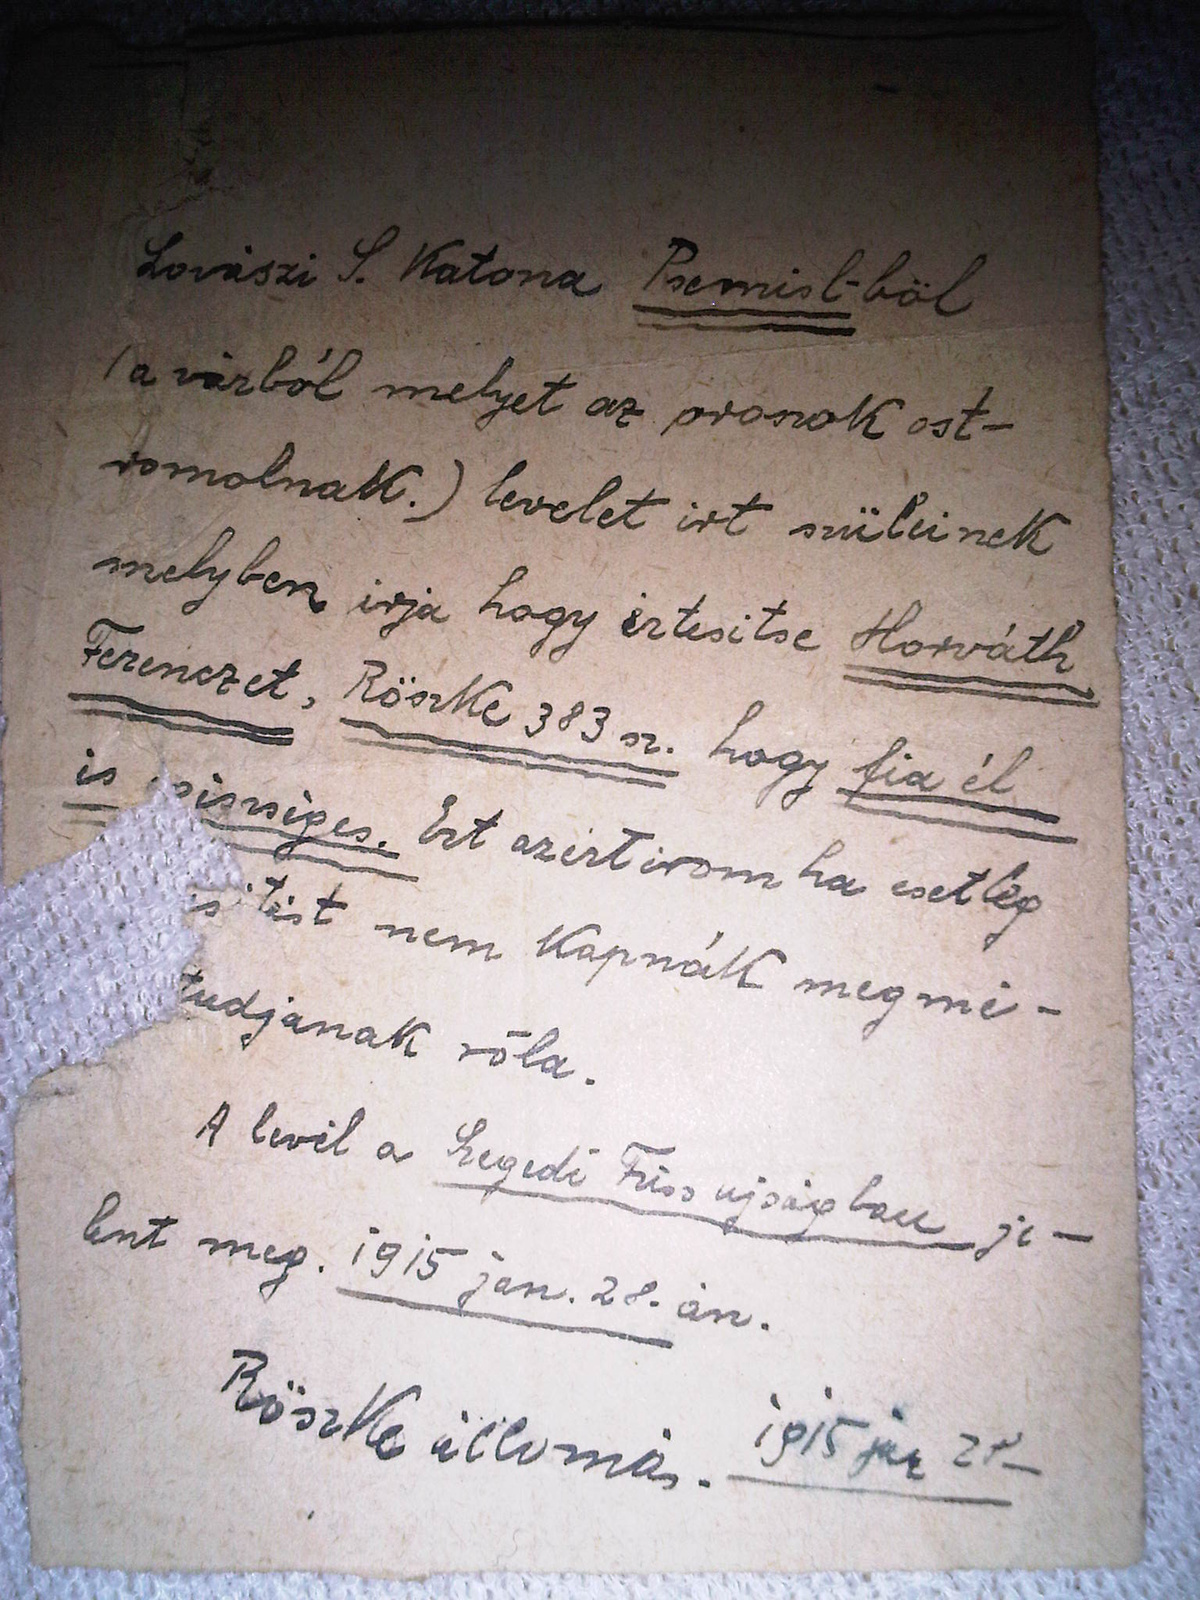 Lovászi S. Katona Psemisl-ből
(a várból melyet az oroszok ost-
romolnak.) levelet irt szüleinek
melyben irja hogy értesitse Horváth
Ferenczet, Röszke 383 sz. hogy fia él
is egiszséges. Ezt azért irom ha esetleg
sitést nem kapnák megmé-
tudjanak róla.
A levél a Szegedi Friss ujságban je-
lent meg. 1915 jan. 28. án.
Röszke állomás. 1915 jan 28-